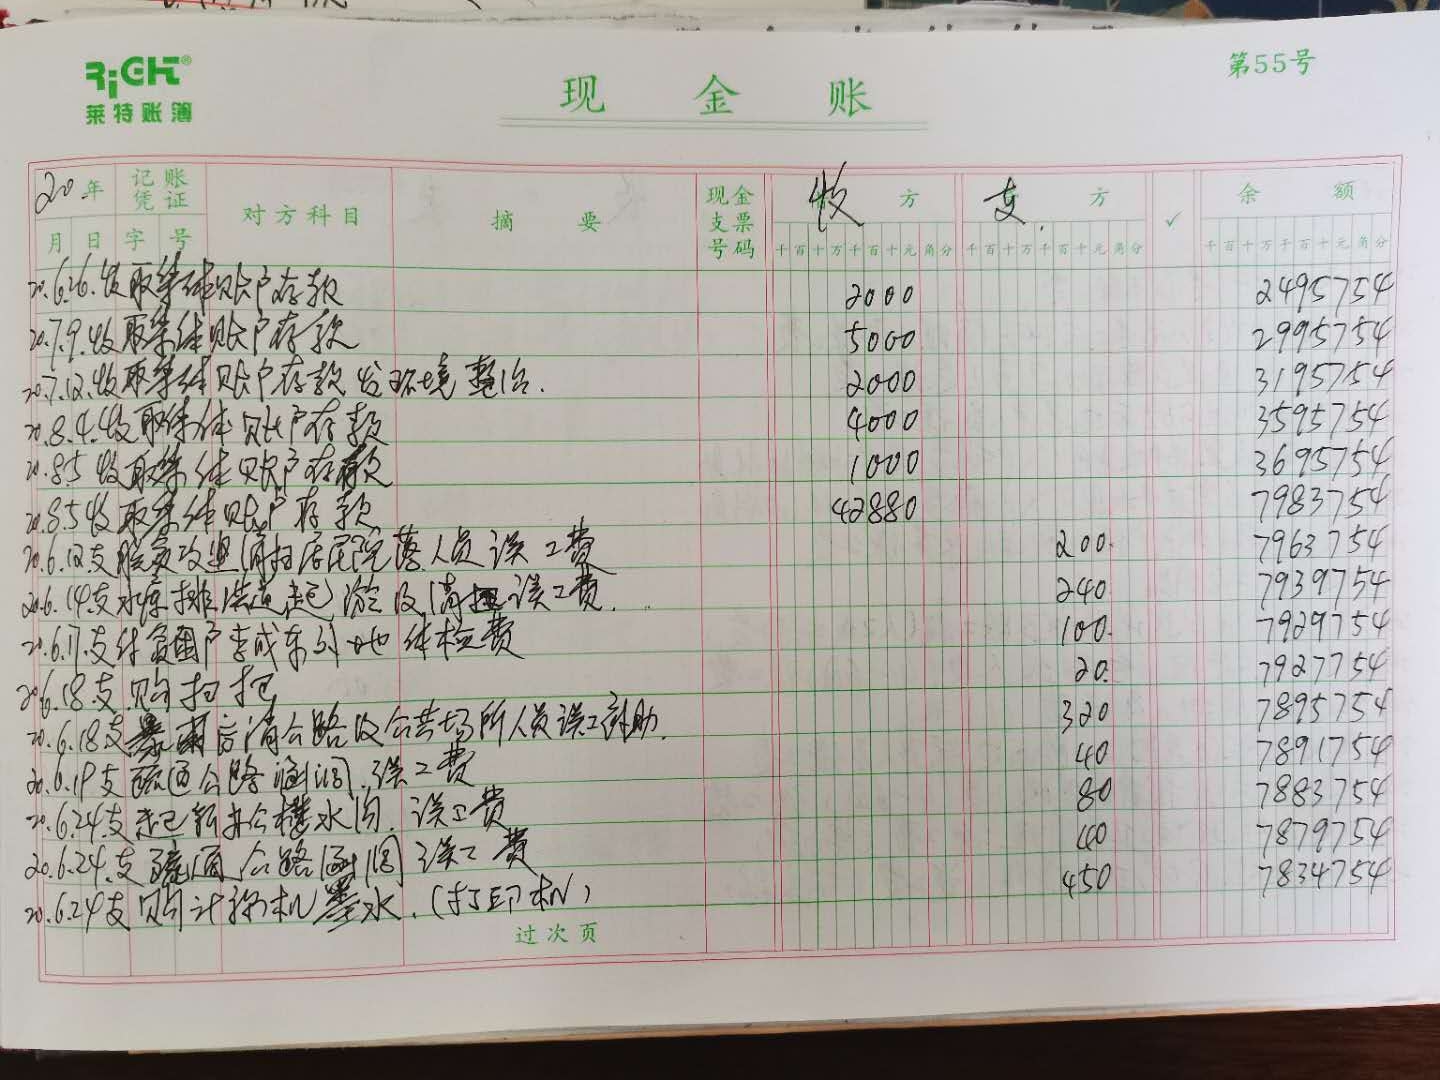 RiCH®
莱特账簿
现金账
第55号
20年 记账凭证 对方科目 摘要 现金支票号码 收方 支方 ✓ 余额
月 日 字 号 千百十万千百十元角分 千百十万千百十元角分 千百十万千百十元角分
20.6.26.收取集体账户存款 2000 2495754
20.7.9.收取集体账户存款 5000 2995754
20.7.12.收取集体账户存款发环境整治. 2000 3195754
20.8.4.收取集体账户存款 4000 3595754
20.8.5收取集体账户存款 1000 3695754
20.8.5收取集体账户存款 42880 7983754
20.6.12支脱贫攻坚清扫居民院落人员误工费 200. 7963754
20.6.14支水库排洪道起已淤及清扫误工费. 240 7939754
20.6.17.支付贫困户李成东 体检费 100. 7929754
20.6.18.支.购扫把 20. 7927754
20.6.18支暴雨后清公路及公共场所人员误工补助. 320 7895754
20.6.19支疏通公路涵洞.误工费 40 7891754
20.6.24.支起 办公楼水沟.误工费 80 7883754
20.6.24.支疏通公路涵洞误工费 40 7879754
20.6.24支购计算机墨水.(打印机) 450 7834754
过次页